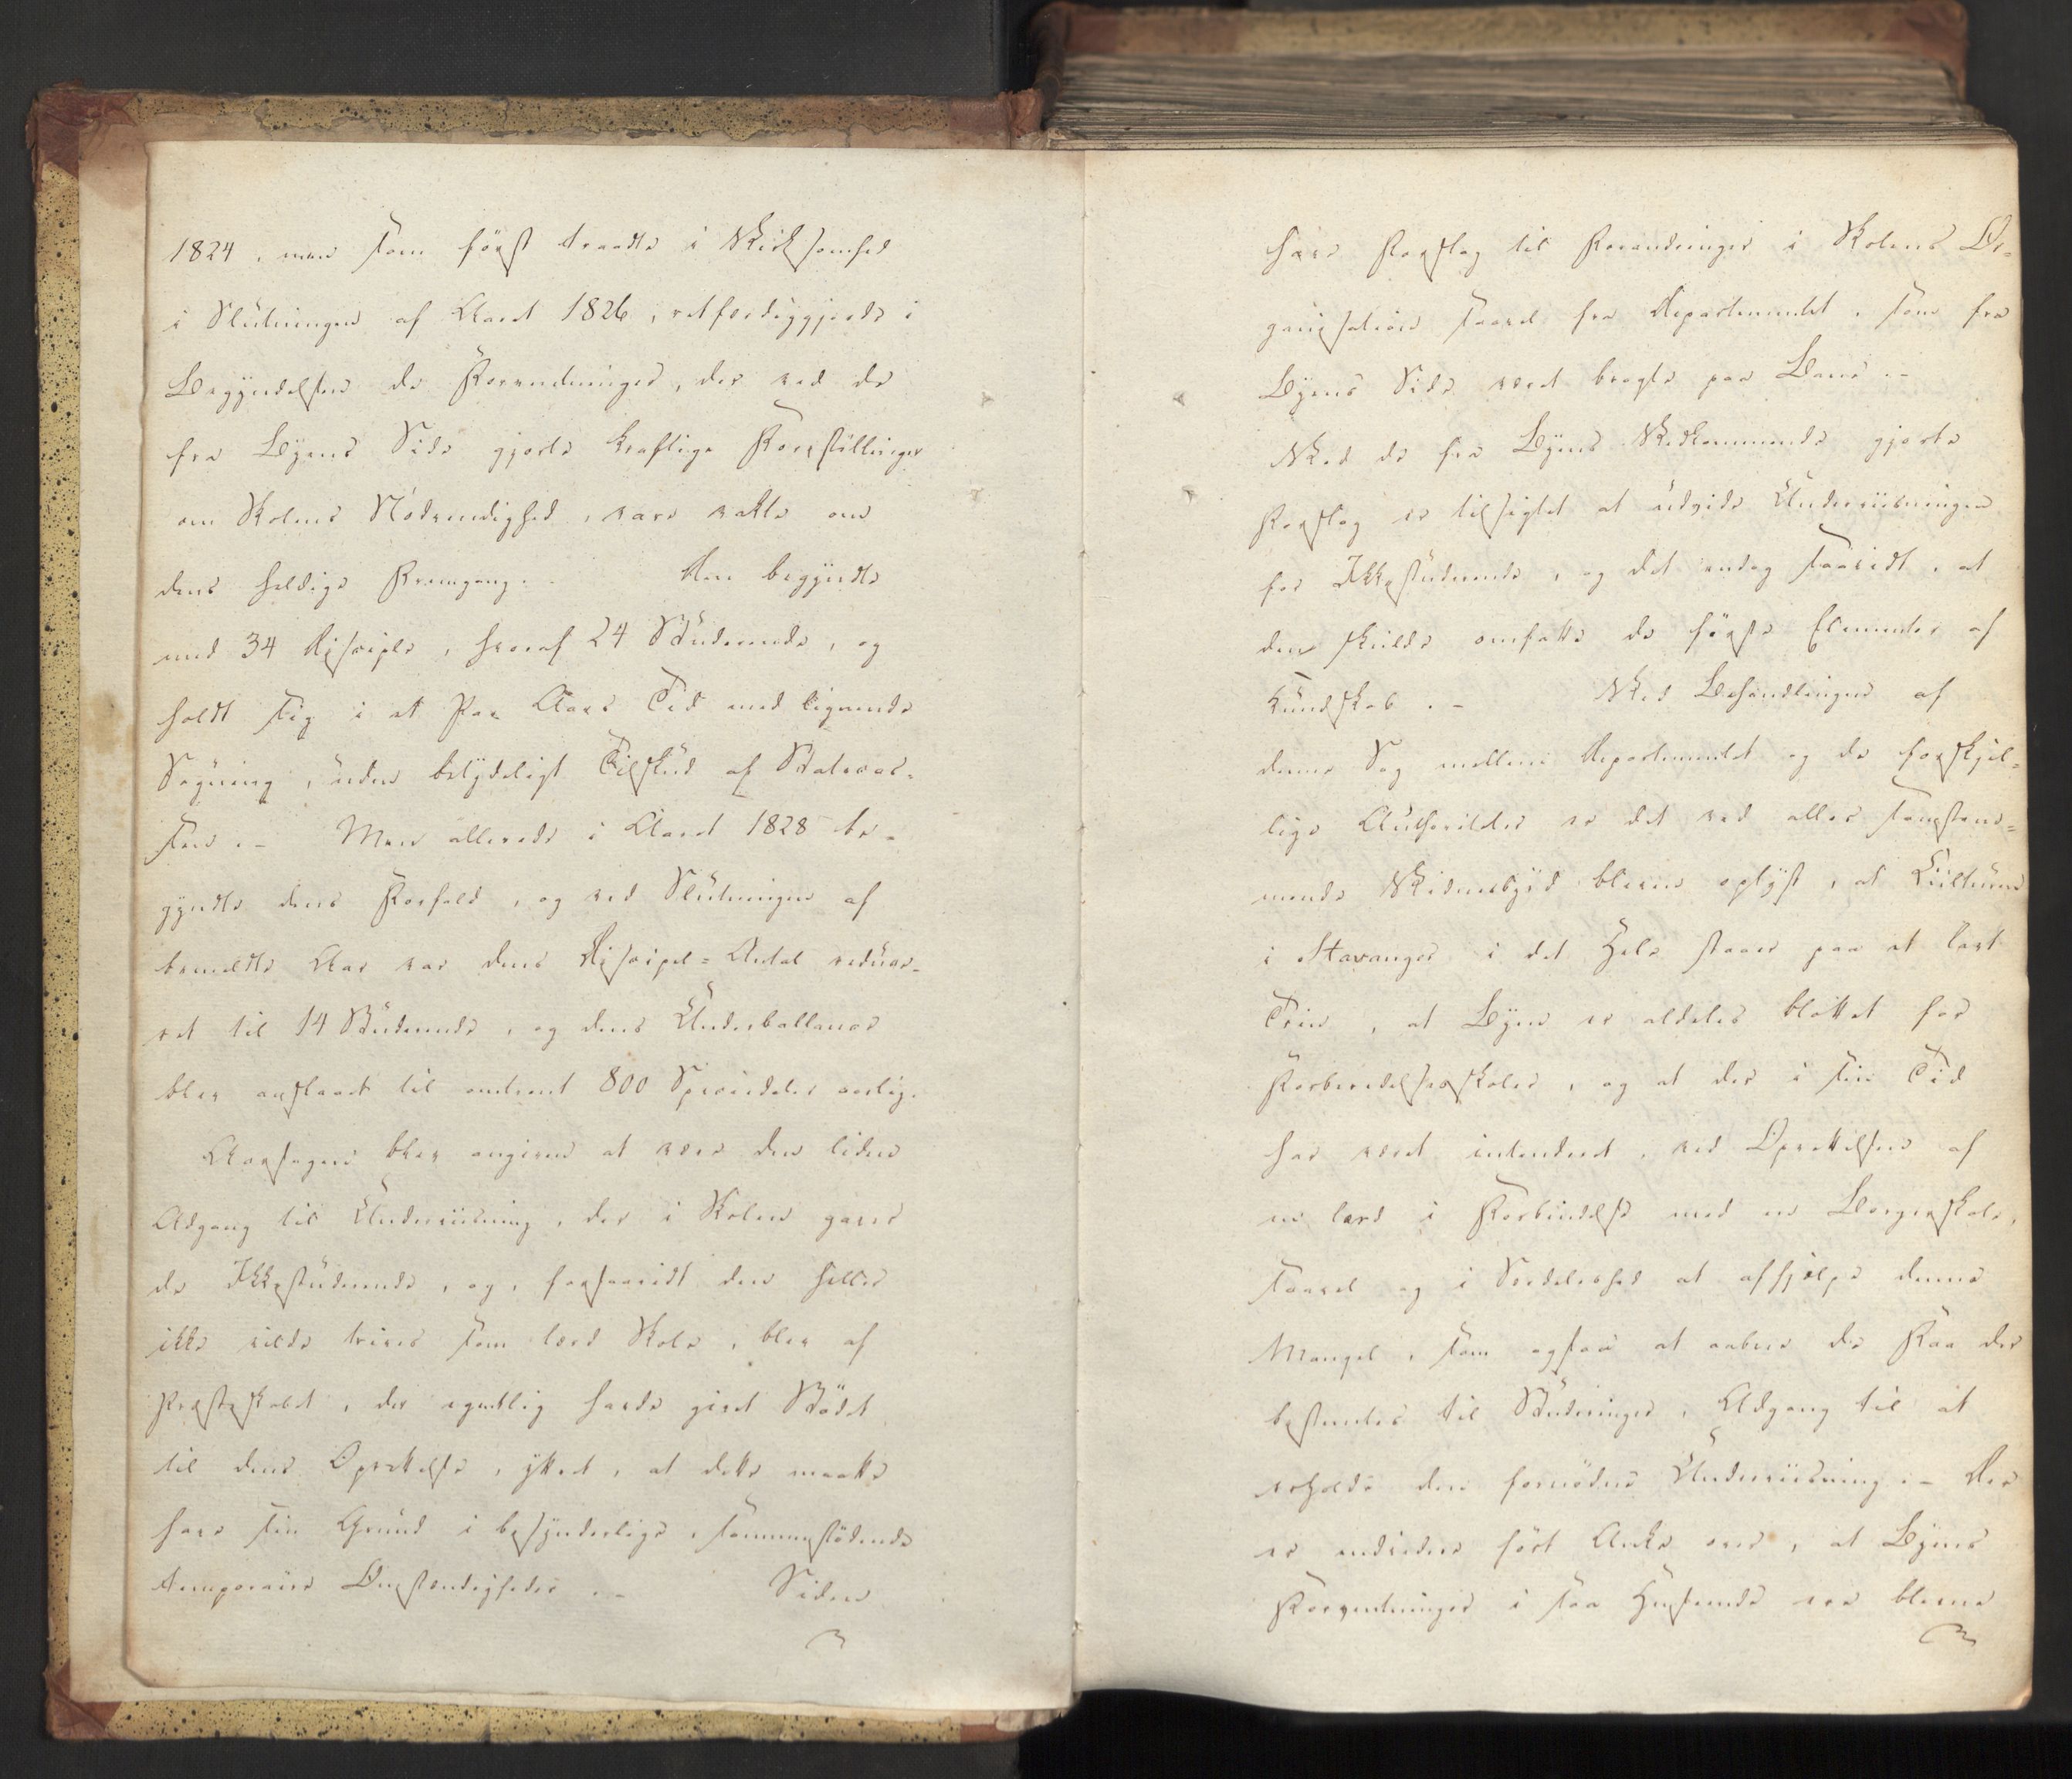 1824, men som først traadte i Virksomhed
i Slutningen af Aaret 1826, retfærdiggjorde i
Begyndelsen de Forventninger, der ved de
fra Byens Side gjorte kraftige Forestillinger
om Skolens Nødvendighed, vare vakte om
dens heldige Fremgang. Den begyndte
med 34 Disciple, hvoraf 24 Studerende, og
holdt sig i et Par Aars Tid med lignende
Søgning, uden betydeligt Tilskud af Statscas-
sen. – Men allerede i Aaret 1828 be-
gyndte dens Forfald, og ved Slutningen af
bemeldte Aar var dens Discipel-Antal reduce-
ret til 14 Studerende, og dens Underballance
blev anslaaet til omtrent 800 Speciedaler aarlig.
Aarsagen blev angiven at være den liden
Adgang til Underviisning, der i Skolen gaves
de Ikkestuderende, og, forsaavidt den heller
ikke vilde trives som lærd Skole, blev af
Præsteskabet, der egentlig havde givet Stødet
til dens Oprettelse, yttret, at dette maatte
have sin Grund i besynderlige, sammenstødende
temporaire Omstændigheder. – Siden
have Forslag til Forandringer i Skolens Or-
ganisation saavel fra Departementet, som fra
Byens Side været bragte paa Bane. –
Ved de fra Byens Vedkommende gjorte
Forslag er tilsigtet at udvide Underviisningen
for Ikkestuderende, og det endog saavidt, at
den skulde omfatte de første Elementer af
Kundskab. – Ved Behandlingen af
denne Sag mellem Departementet og de forskjel-
lige Authoriteter er det ved alles samstem-
mende Vidnesbyrd bleven oplyst, at Culturen
i Stavanger i det Hele staaer paa et lavt
Trin, at Byen er aldeles blottet for
Forberedelsesskoler, og at der i sin Tid
har været intenderet, ved Oprettelsen af
en lærd i Forbindelse med en Borgerskole,
saavel og i Særdeleshed at afhjelpe denne
Mangel, som ogsaa at aabne de Faa der
bestemtes til Studeringer, Adgang til at
erholde den fornødne Underviisning. – Der
er endvidere ført Anke over, at Byens
Forventninger i saa Henseende ere blevne